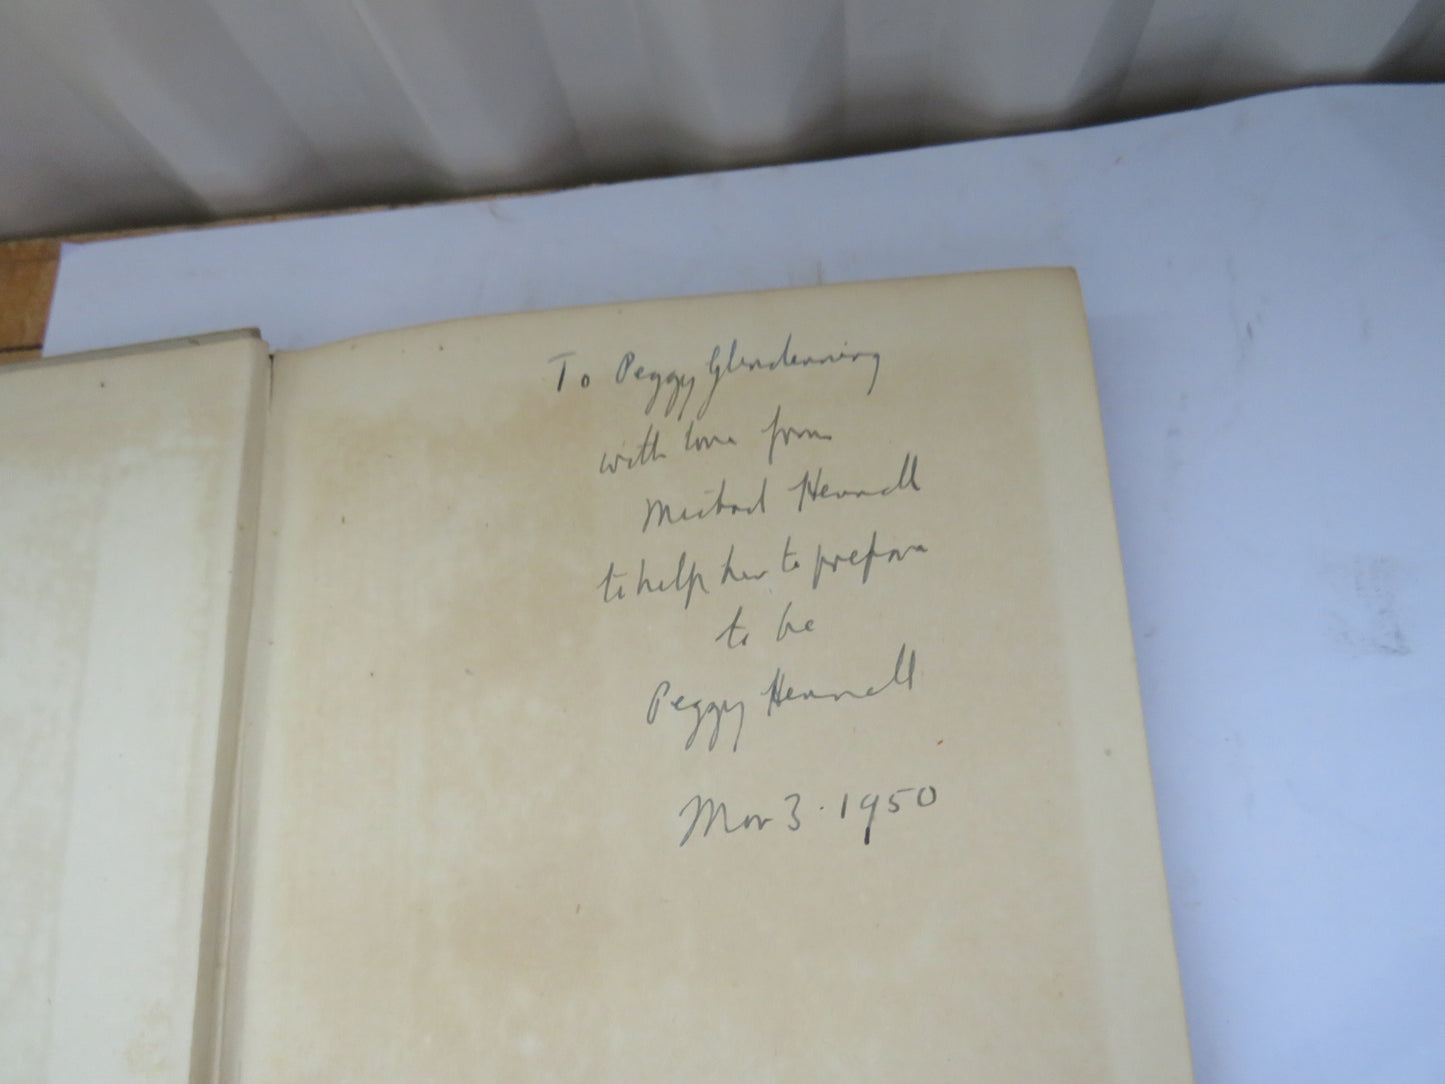 To Peggy Glendenning
with love from
Michael Hennell
to help her to prepare
to be
Peggy Hennell
Nov 3. 1950